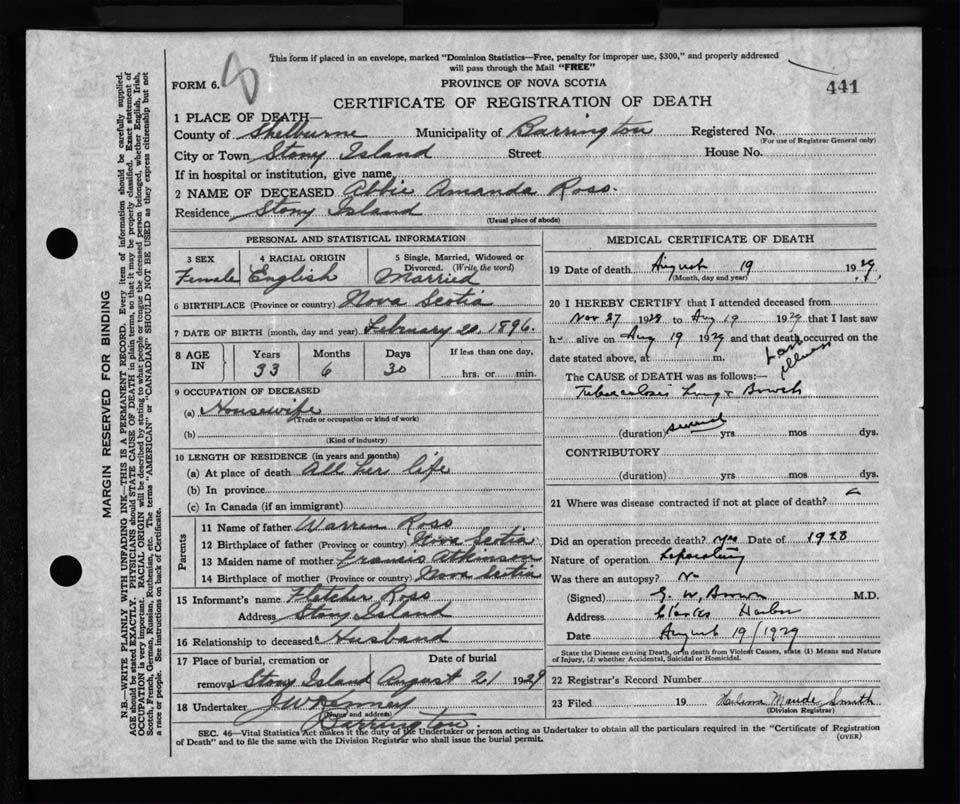 This form if placed in an envelope, marked "Dominion Statistics—Free, penalty for improper use, $300," and properly addressed
will pass through the Mail "FREE"
FORM 6.
PROVINCE OF NOVA SCOTIA
441
CERTIFICATE OF REGISTRATION OF DEATH
1 PLACE OF DEATH—
County of Shelburne Municipality of Barrington Registered No.
(For use of Registrar General only)
City or Town Stony Island Street House No.
If in hospital or institution, give name
2 NAME OF DECEASED Abbie Amanda Ross.
Residence Stony Island
(Usual place of abode)
PERSONAL AND STATISTICAL INFORMATION
3 SEX 4 RACIAL ORIGIN 5 Single, Married, Widowed or
Divorced. (Write the word)
Female English Married
6 BIRTHPLACE (Province or country) Nova Scotia
7 DATE OF BIRTH (month, day and year) February 20, 1896.
8 AGE IN Years Months Days If less than one day,
33 6 30 hrs. or min.
9 OCCUPATION OF DECEASED
(a) Housewife
(Trade or occupation or kind of work)
(b)
(Kind of industry)
10 LENGTH OF RESIDENCE (in years and months)
(a) At place of death All her life
(b) In province
(c) In Canada (if an immigrant)
Parents
11 Name of father Warren Ross
12 Birthplace of father (Province or country) Nova Scotia
13 Maiden name of mother Francis Atkinson
14 Birthplace of mother (Province or country) Nova Scotia
15 Informant's name Fletcher Ross
Address Stony Island
16 Relationship to deceased Husband
17 Place of burial, cremation or Date of burial
removal Stony Island August 21 1929
18 Undertaker J W
(Name and address)
Barrington.
MEDICAL CERTIFICATE OF DEATH
19 Date of death August 19 1929
(Month, day and year)
20 I HEREBY CERTIFY that I attended deceased from
Nov 27 1928 to Aug 19 1929 that I last saw
h alive on Aug 19 1929 and that death occurred on the
date stated above, at m. Last illness
The CAUSE OF DEATH was as follows:—
Tuberculosis Lung & Bowels
(duration) several yrs mos dys.
CONTRIBUTORY
(duration) yrs mos dys.
21 Where was disease contracted if not at place of death?
Did an operation precede death? yes Date of 1928
Nature of operation Laparotomy
Was there an autopsy? No
(Signed) G. W. Brown M.D.
Address Clarks Harbor
Date August 19/1929
State the Disease causing Death, or in death from Violent Causes, state (1) Means and Nature
of Injury, (2) whether Accidental, Suicidal or Homicidal.
22 Registrar's Record Number
23 Filed 19 Maude Smith
(Division Registrar)
SEC. 46—Vital Statistics Act makes it the duty of the Undertaker or person acting as Undertaker to obtain all the particulars required in the "Certificate of Registration
of Death" and to file the same with the Division Registrar who shall issue the burial permit.
(OVER)
MARGIN RESERVED FOR BINDING
N.B.—WRITE PLAINLY WITH UNFADING INK—THIS IS A PERMANENT RECORD. Every item of information should be carefully supplied.
AGE should be stated EXACTLY. PHYSICIANS should STATE CAUSE OF DEATH in plain terms, so that it may be properly classified. Exact statement of
OCCUPATION is very important. RACIAL ORIGIN will be described by stating to what people or tongue the deceased person belonged, whether English, Irish,
Scotch, French, German, Russian, Ruthenian, etc. The terms "AMERICAN" or "CANADIAN" SHOULD NOT BE USED as they express citizenship but not
a race or people. See instructions on back of Certificate.